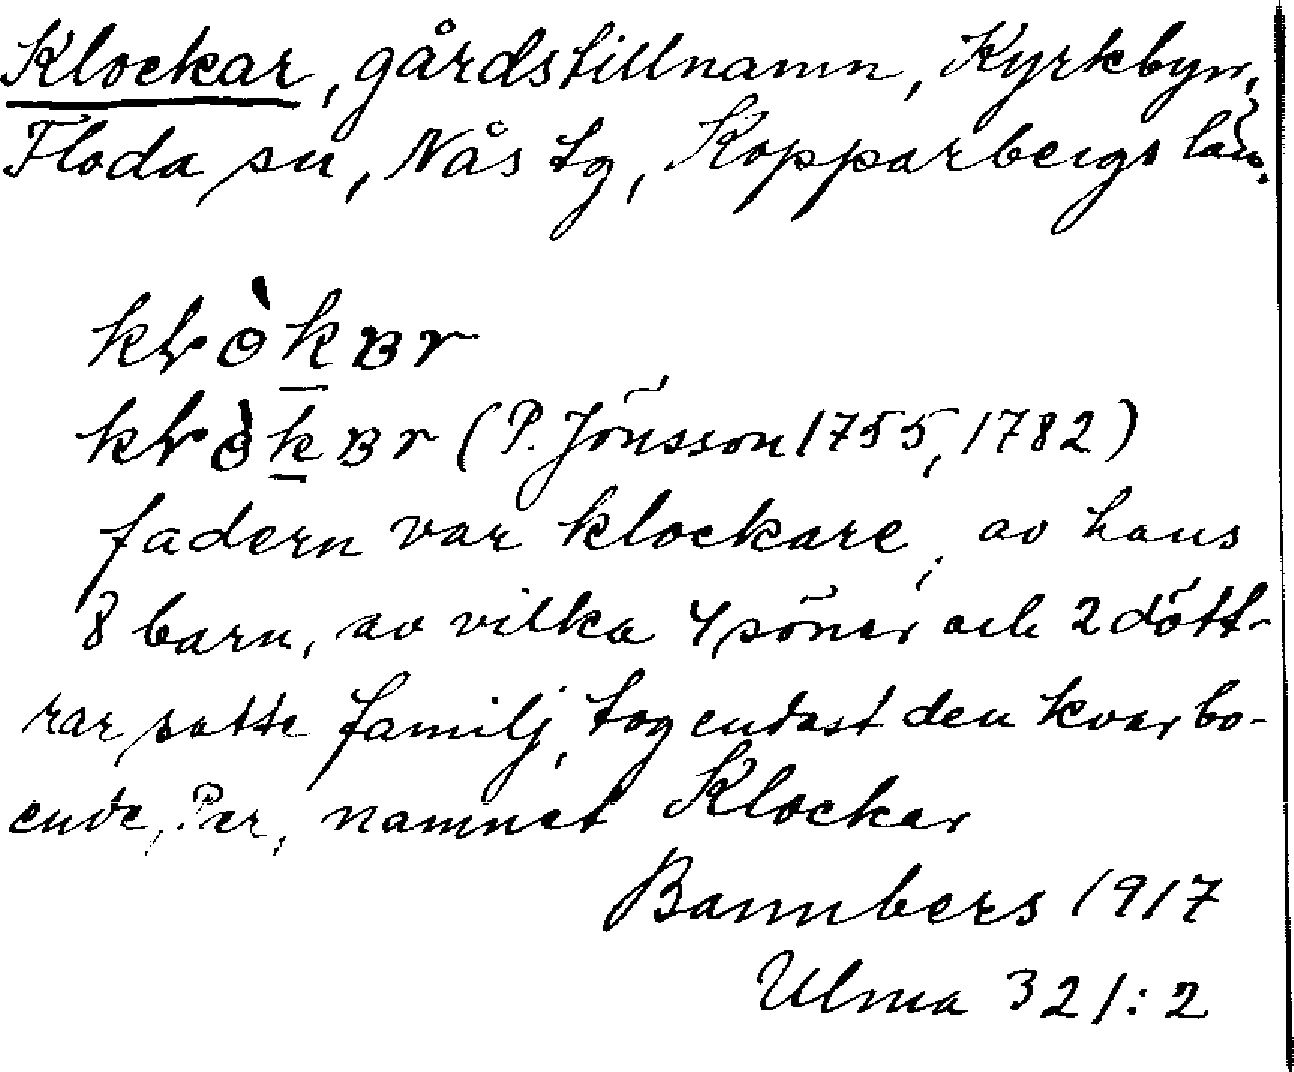 Klockar, gårdstillnamn, Kyrkbyn,
Floda sn, Nås tg, Kopparbergs län.
(P. Jönsson 1755, 1782)
fadern var klockare, av hans
8 barn, av vilka 4 söner och 2 dött-
rar satte familj, tog endast den kvarbo-
ende, Per, namnet Klockar
Bannbers 1917
Ulma 321:2